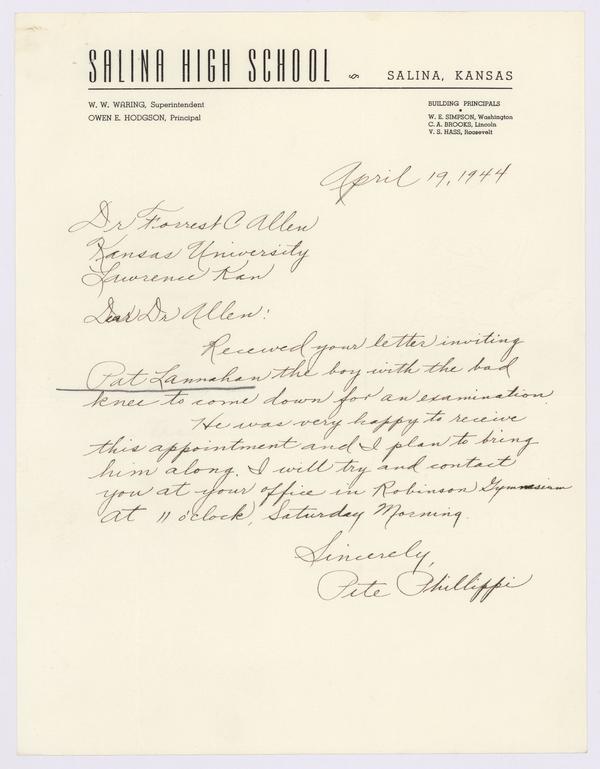 SALINA HIGH SCHOOL
SALINA, KANSAS
W. W. WARING, Superintendent
OWEN E. HODGSON, Principal
BUILDING PRINCIPALS
W. E. SIMPSON, Washington
C. A. BROOKS, Lincoln
V. S. HASS, Roosevelt
April 19, 1944
Dr Forrest C Allen
Kansas University
Lawrence Kan
Dear Dr Allen:
Received your letter inviting
Pat Lannahan the boy with the bad
knee to come down for an examination.
He was very happy to receive
this appointment and I plan to bring
him along. I will try and contact
you at your office in Robinson Gymnasium
at 11 o'clock, Saturday Morning.
Sincerely,
Pete Phillippi